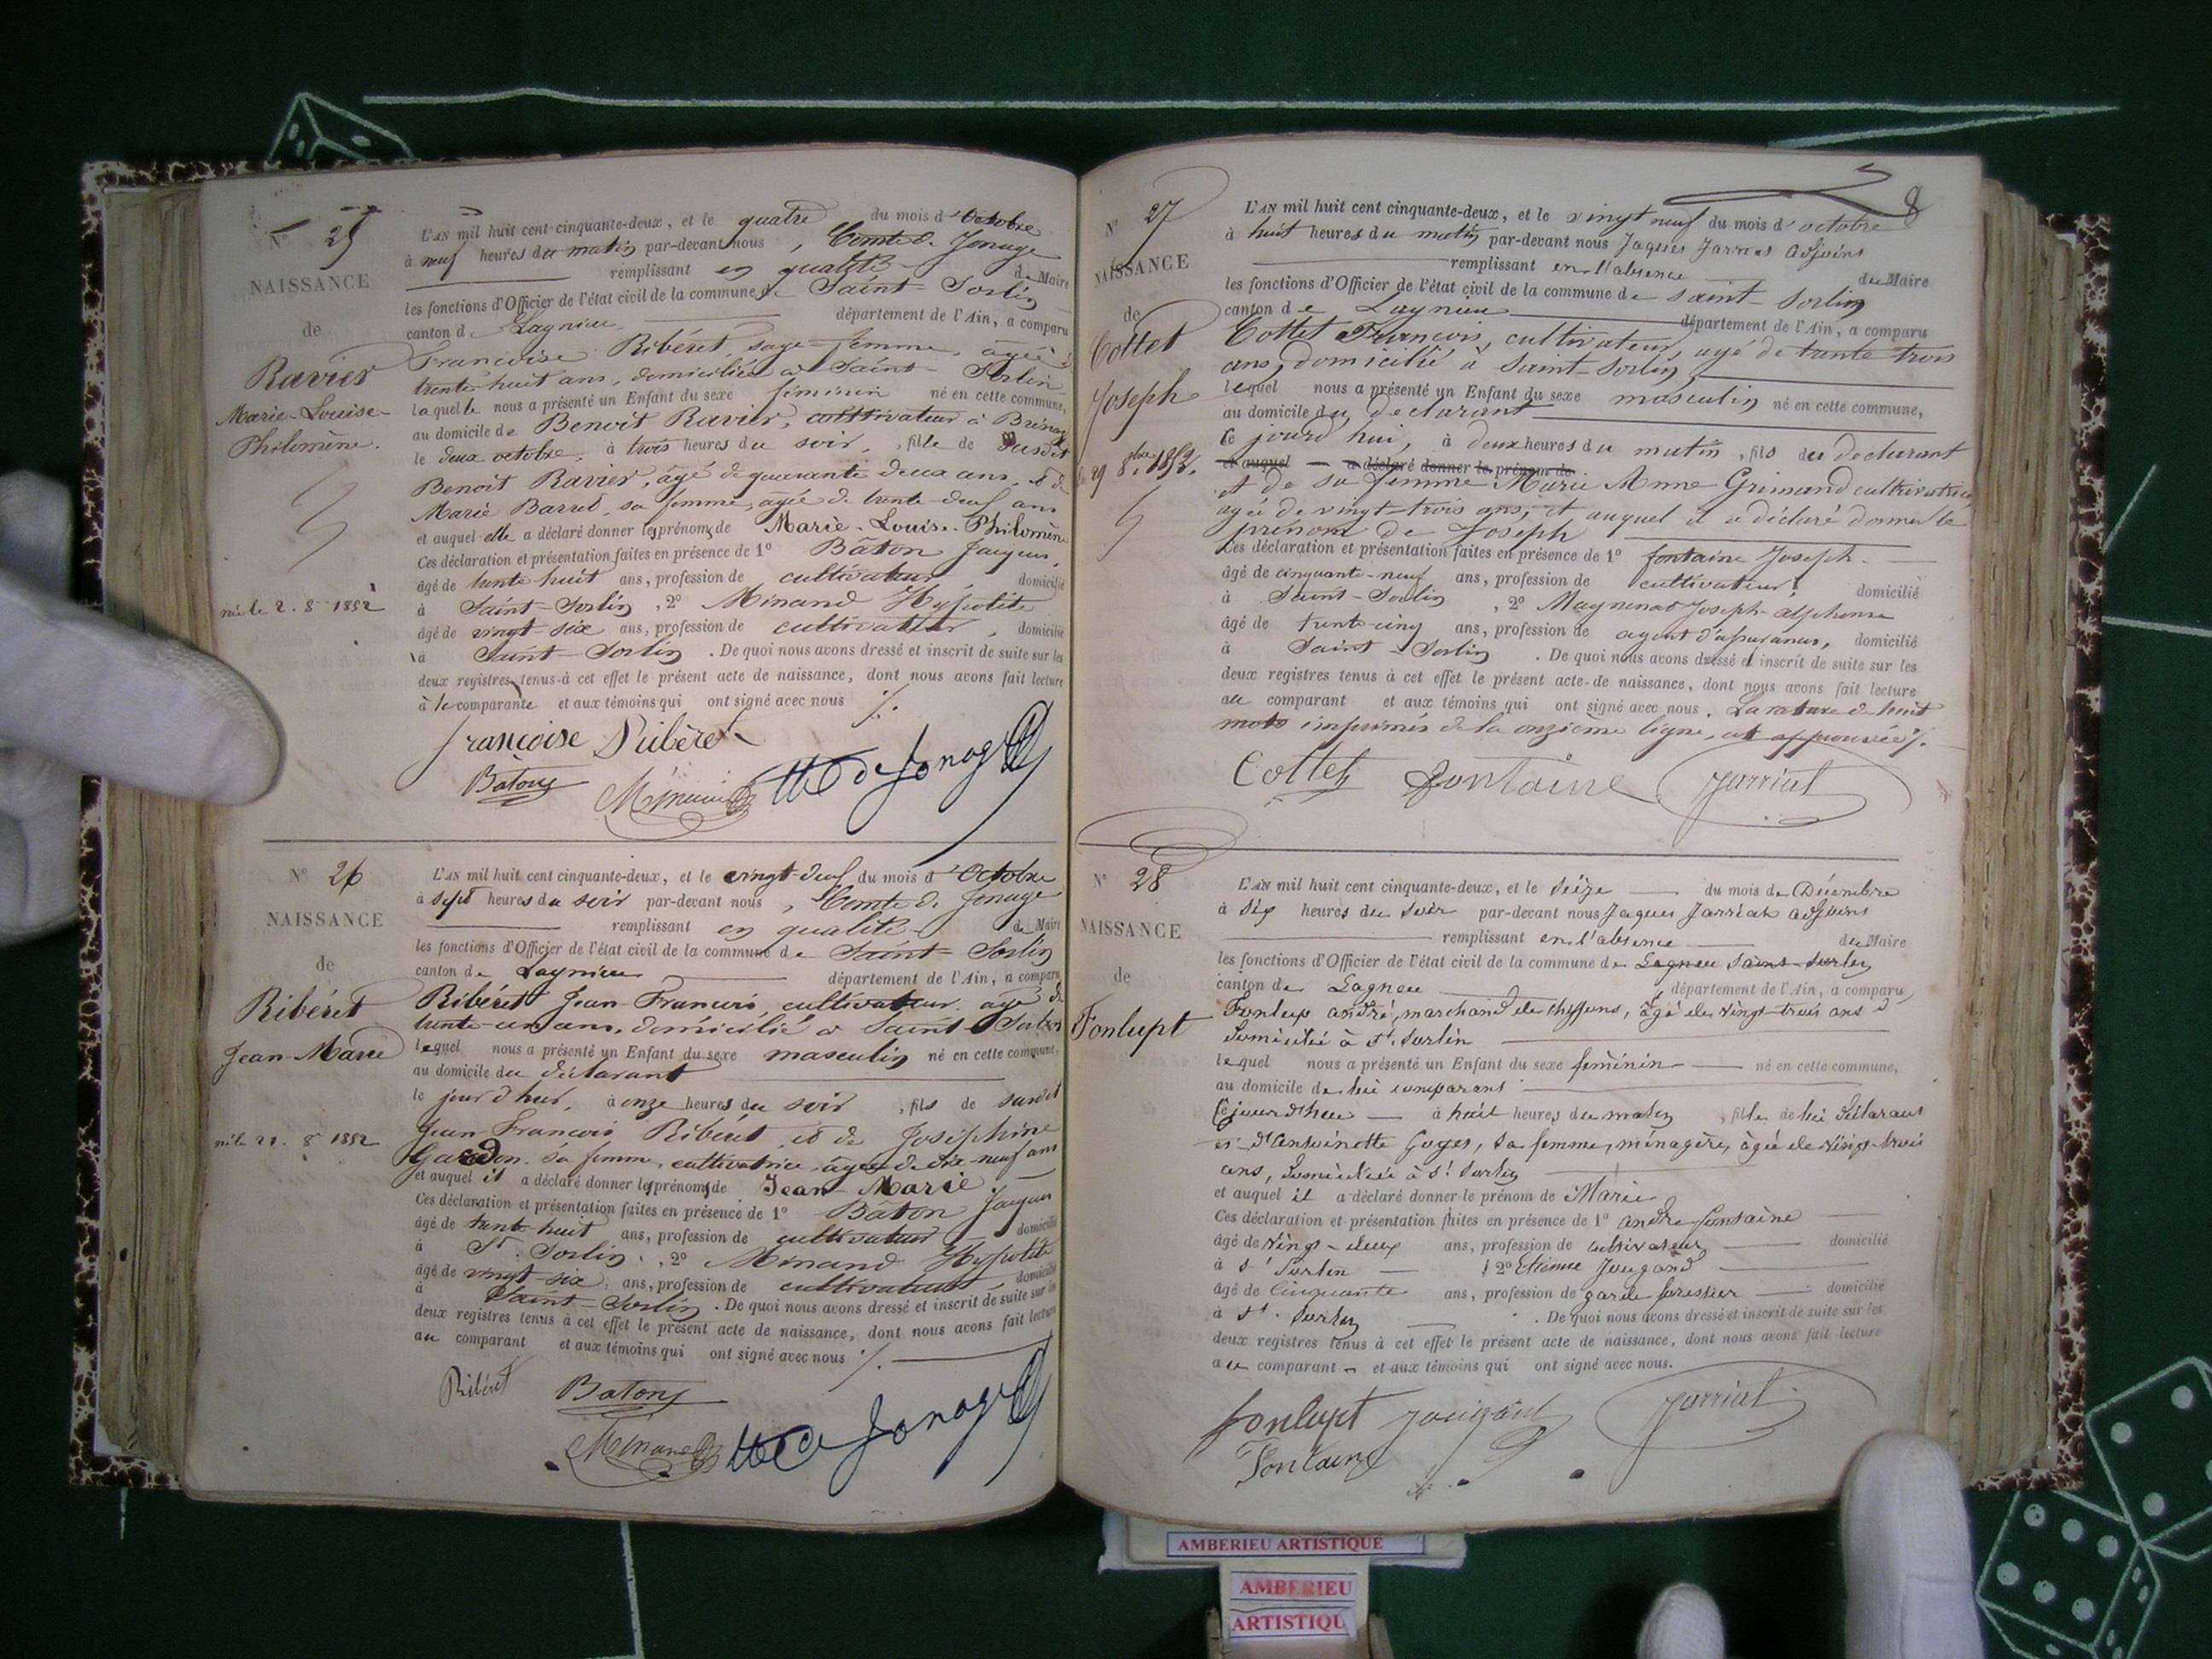 N° 25
NAISSANCE
de
Ravier
Marie-Louise-
Philomène.
née le 2. 8bre 1852
L'AN mil huit cent cinquante-deux, et le quatre du mois d'Octobre
à neuf heures du matin par-devant nous, Comte de Jonage
remplissant en qualité de Maire
les fonctions d'Officier de l'état civil de la commune de Saint-Sorlin
canton de Lagnieu département de l'Ain, a comparu
Françoise Ribéret, sage-femme, âgée de
trente-huit ans, domiciliée à Saint-Sorlin
laquelle nous a présenté un Enfant du sexe féminin né en cette commune,
au domicile de Benoit Ravier, cultivateur à
le deux octobre, à trois heures du soir, fille de Susdit
Benoit Ravier, âgé de quarante deux ans, et de
Marie Barret, sa femme, âgée de trente-deux ans
et auquel elle a déclaré donner les prénoms de Marie-Louise-Philomène
Ces déclaration et présentation faites en présence de 1° Bâton Jacques,
âgé de trente-huit ans, profession de cultivateur, domicilié
à Saint-Sorlin, 2° Minand Hypolite
âgé de vingt-six ans, profession de cultivateur, domicilié
à Saint-Sorlin. De quoi nous avons dressé et inscrit de suite sur les
deux registres tenus à cet effet le présent acte de naissance, dont nous avons fait lecture
à la comparante et aux témoins qui ont signé avec nous ./.
françoise Ribèret
Bâton Minand Cte de Jonage
N° 26
NAISSANCE
de
Ribéret
Jean-Marie
né le 21. 8bre 1852
L'AN mil huit cent cinquante-deux, et le vingt-deux du mois d'Octobre
à sept heures du soir par-devant nous, Comte de Jonage
remplissant en qualité de Maire
les fonctions d'Officier de l'état civil de la commune de Saint-Sorlin
canton de Lagnieu département de l'Ain, a comparu
Ribéret Jean-François, cultivateur, âgé de
trente-un ans, domicilié à Saint-Sorlin
lequel nous a présenté un Enfant du sexe masculin né en cette commune,
au domicile du déclarant
le jour d'hier, à onze heures du soir, fils de susdit
Jean-François Ribéret, et de Joséphine
sa femme, cultivatrice, âgée de dix-neuf ans
et auquel il a déclaré donner les prénoms de Jean-Marie
Ces déclaration et présentation faites en présence de 1° Bâton Jacques
âgé de trente-huit ans, profession de cultivateur domicilié
à St. Sorlin, 2° Minand Hypolite
âgé de vingt-six ans, profession de cultivateur, domicilié
à Saint-Sorlin. De quoi nous avons dressé et inscrit de suite sur les
deux registres tenus à cet effet le présent acte de naissance, dont nous avons fait lecture
au comparant et aux témoins qui ont signé avec nous ./.
Ribéret Baton
Minand Cte de Jonage
8
N° 27
NAISSANCE
de
Cottet
Joseph
le 29 8bre 1852.
L'AN mil huit cent cinquante-deux, et le vingt neuf du mois d'octobre
à huit heures du matin par-devant nous Jaques Jarriat adjoint
remplissant en l'absence du Maire
les fonctions d'Officier de l'état civil de la commune de Saint-Sorlin
canton de Lagnieu département de l'Ain, a comparu
Cottet François, cultivateur, agé de trente trois
ans, domicilié à Saint-Sorlin,
lequel nous a présenté un Enfant du sexe masculin né en cette commune,
au domicile du déclarant
Ce jourd'hui, à deux heures du matin, fils du declarant
et auquel a déclaré donner le prénom de
et de sa femme Marie Anne Grimand cultivatrice
agée de vingt-trois ans, et auquel il a déclaré donner le
prénom de Joseph
Ces déclaration et présentation faites en présence de 1° fontaine Joseph.
âgé de cinquante-neuf ans, profession de cultivateur, domicilié
à Saint-Sorlin, 2° Joseph-alphonse
âgé de trente-cinq ans, profession de agent d'assurances, domicilié
à Saint-Sorlin. De quoi nous avons dressé et inscrit de suite sur les
deux registres tenus à cet effet le présent acte de naissance, dont nous avons fait lecture
au comparant et aux témoins qui ont signé avec nous. La rature de huit
mots imprimés de la onzième ligne, est approuvée ./.
Cottet fontaine Jarriat
N° 28
NAISSANCE
de
Fonlupt
L'AN mil huit cent cinquante-deux, et le Seize du mois de Décembre
à six heures du soir par-devant nous Jaques Jarriat adjoint
remplissant en l'absence du Maire
les fonctions d'Officier de l'état civil de la commune de Lagneu Saint-Sorlin
canton de Lagneu département de l'Ain, a comparu,
Fonlup andré, marchand de chiffons, âgé de vingt-trois ans
domicilié à St. Sorlin
lequel nous a présenté un Enfant du sexe féminin né en cette commune,
au domicile de lui comparant
Ce jourd'hui à huit heures du matin, fille de lui déclarant
et d'Antoinette Goyet, sa femme, ménagère, âgée de vingt-trois
ans, domiciliée à St. Sorlin
et auquel il a déclaré donner le prénom de Marie
Ces déclaration et présentation faites en présence de 1° andre fontaine
âgé de vingt-deux ans, profession de cultivateur domicilié
à St Sorlin 2° Etienne Jougand
âgé de Cinquante ans, profession de garde forestier domicilié
à St. Sorlin. De quoi nous avons dressé et inscrit de suite sur les
deux registres tenus à cet effet le présent acte de naissance, dont nous avons fait lecture
au comparant et aux témoins qui ont signé avec nous.
fonlupt Jougand Jarriat
Fontaine
AMBERIEU ARTISTIQUE
AMBERIEU
ARTISTIQU